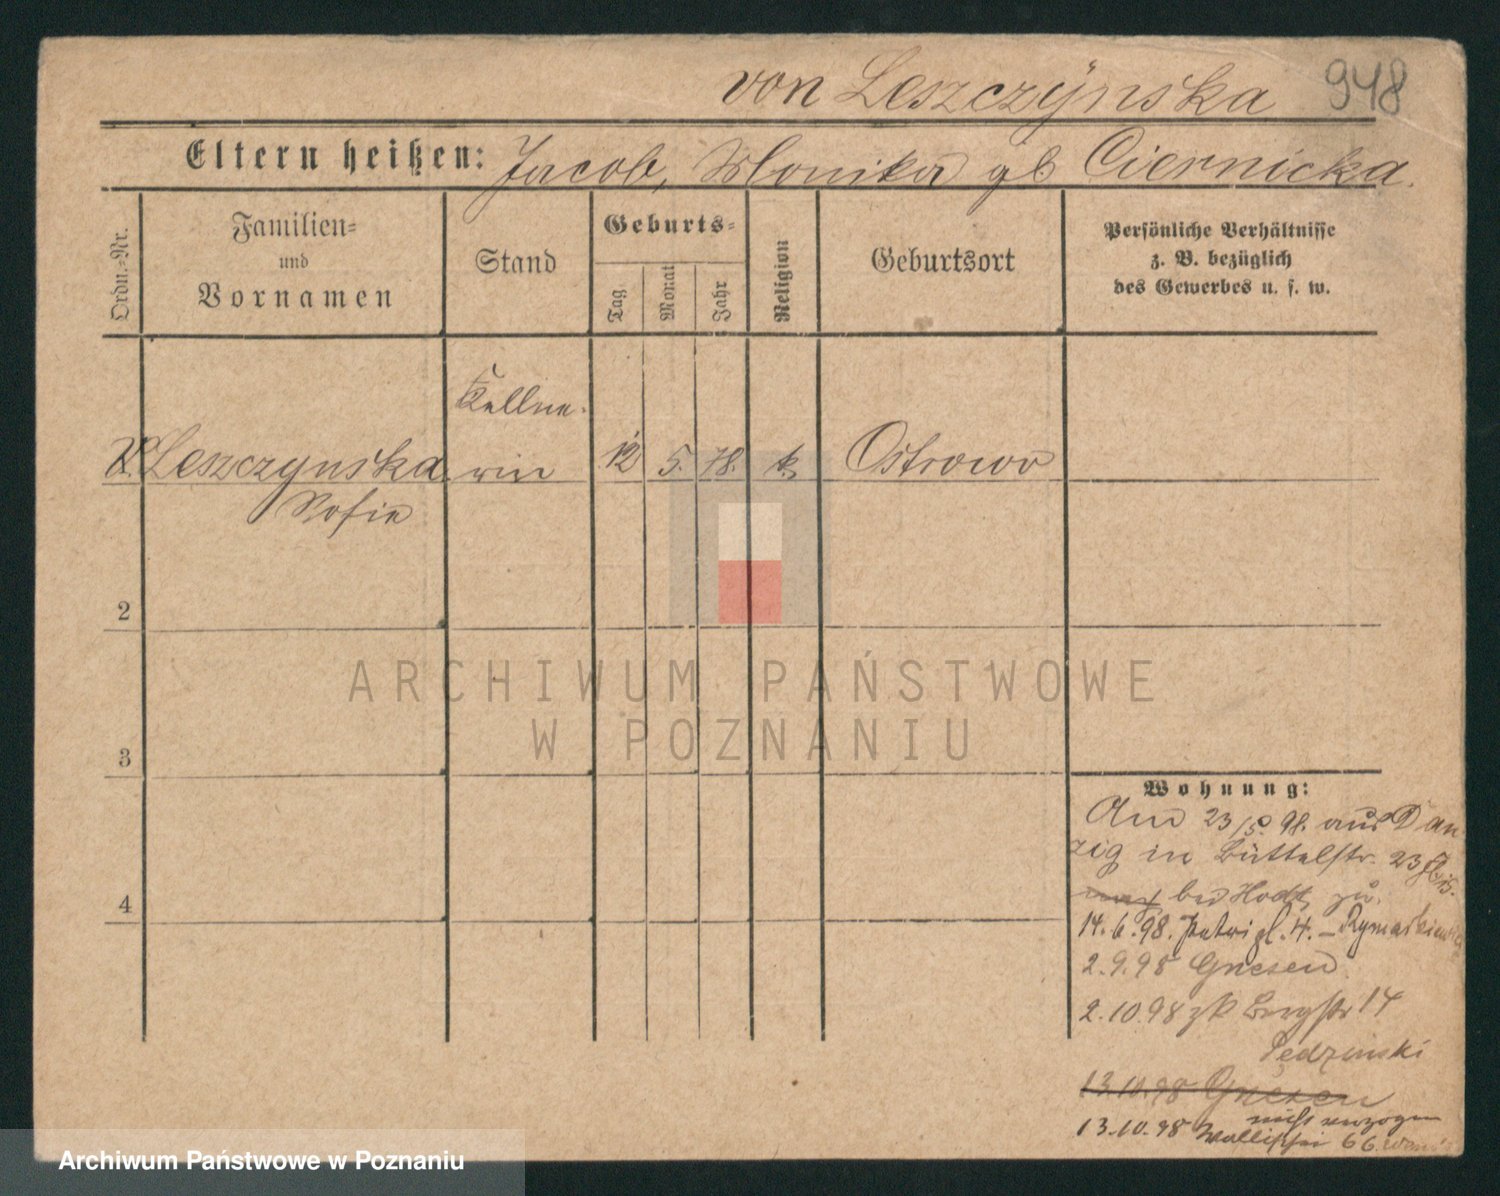 von Leszczÿnska 948
Eltern heißen: Jacob, Monika gb Ciernicka.
Ordn.=Nr.
Familien=
und
Vornamen
Stand
Geburts=
Tag.
Monat
Jahr
Religion
Geburtsort
Persönliche Verhältnisse
z. B. bezüglich
des Gewerbes u. s. w.
v. Leszczynska
Sofie
Kellne-
rin
12 5. 78. k.
Ostrowo
2
3
4
Wohnung:
Am 23/5 98. aus Dan
zig in Büttelstr. 23
bei zu.
14.6.98. Petri pl. 4. – Rymarkiewicz
2.9.98 Gnesen
2.10.98 zk Bergstr 14
Pędzinski
13.10.98 Gnesen
nicht verzogen
13.10.98 Wallischei 66.
ARCHIWUM PAŃSTWOWE
W POZNANIU
Archiwum Państwowe w Poznaniu